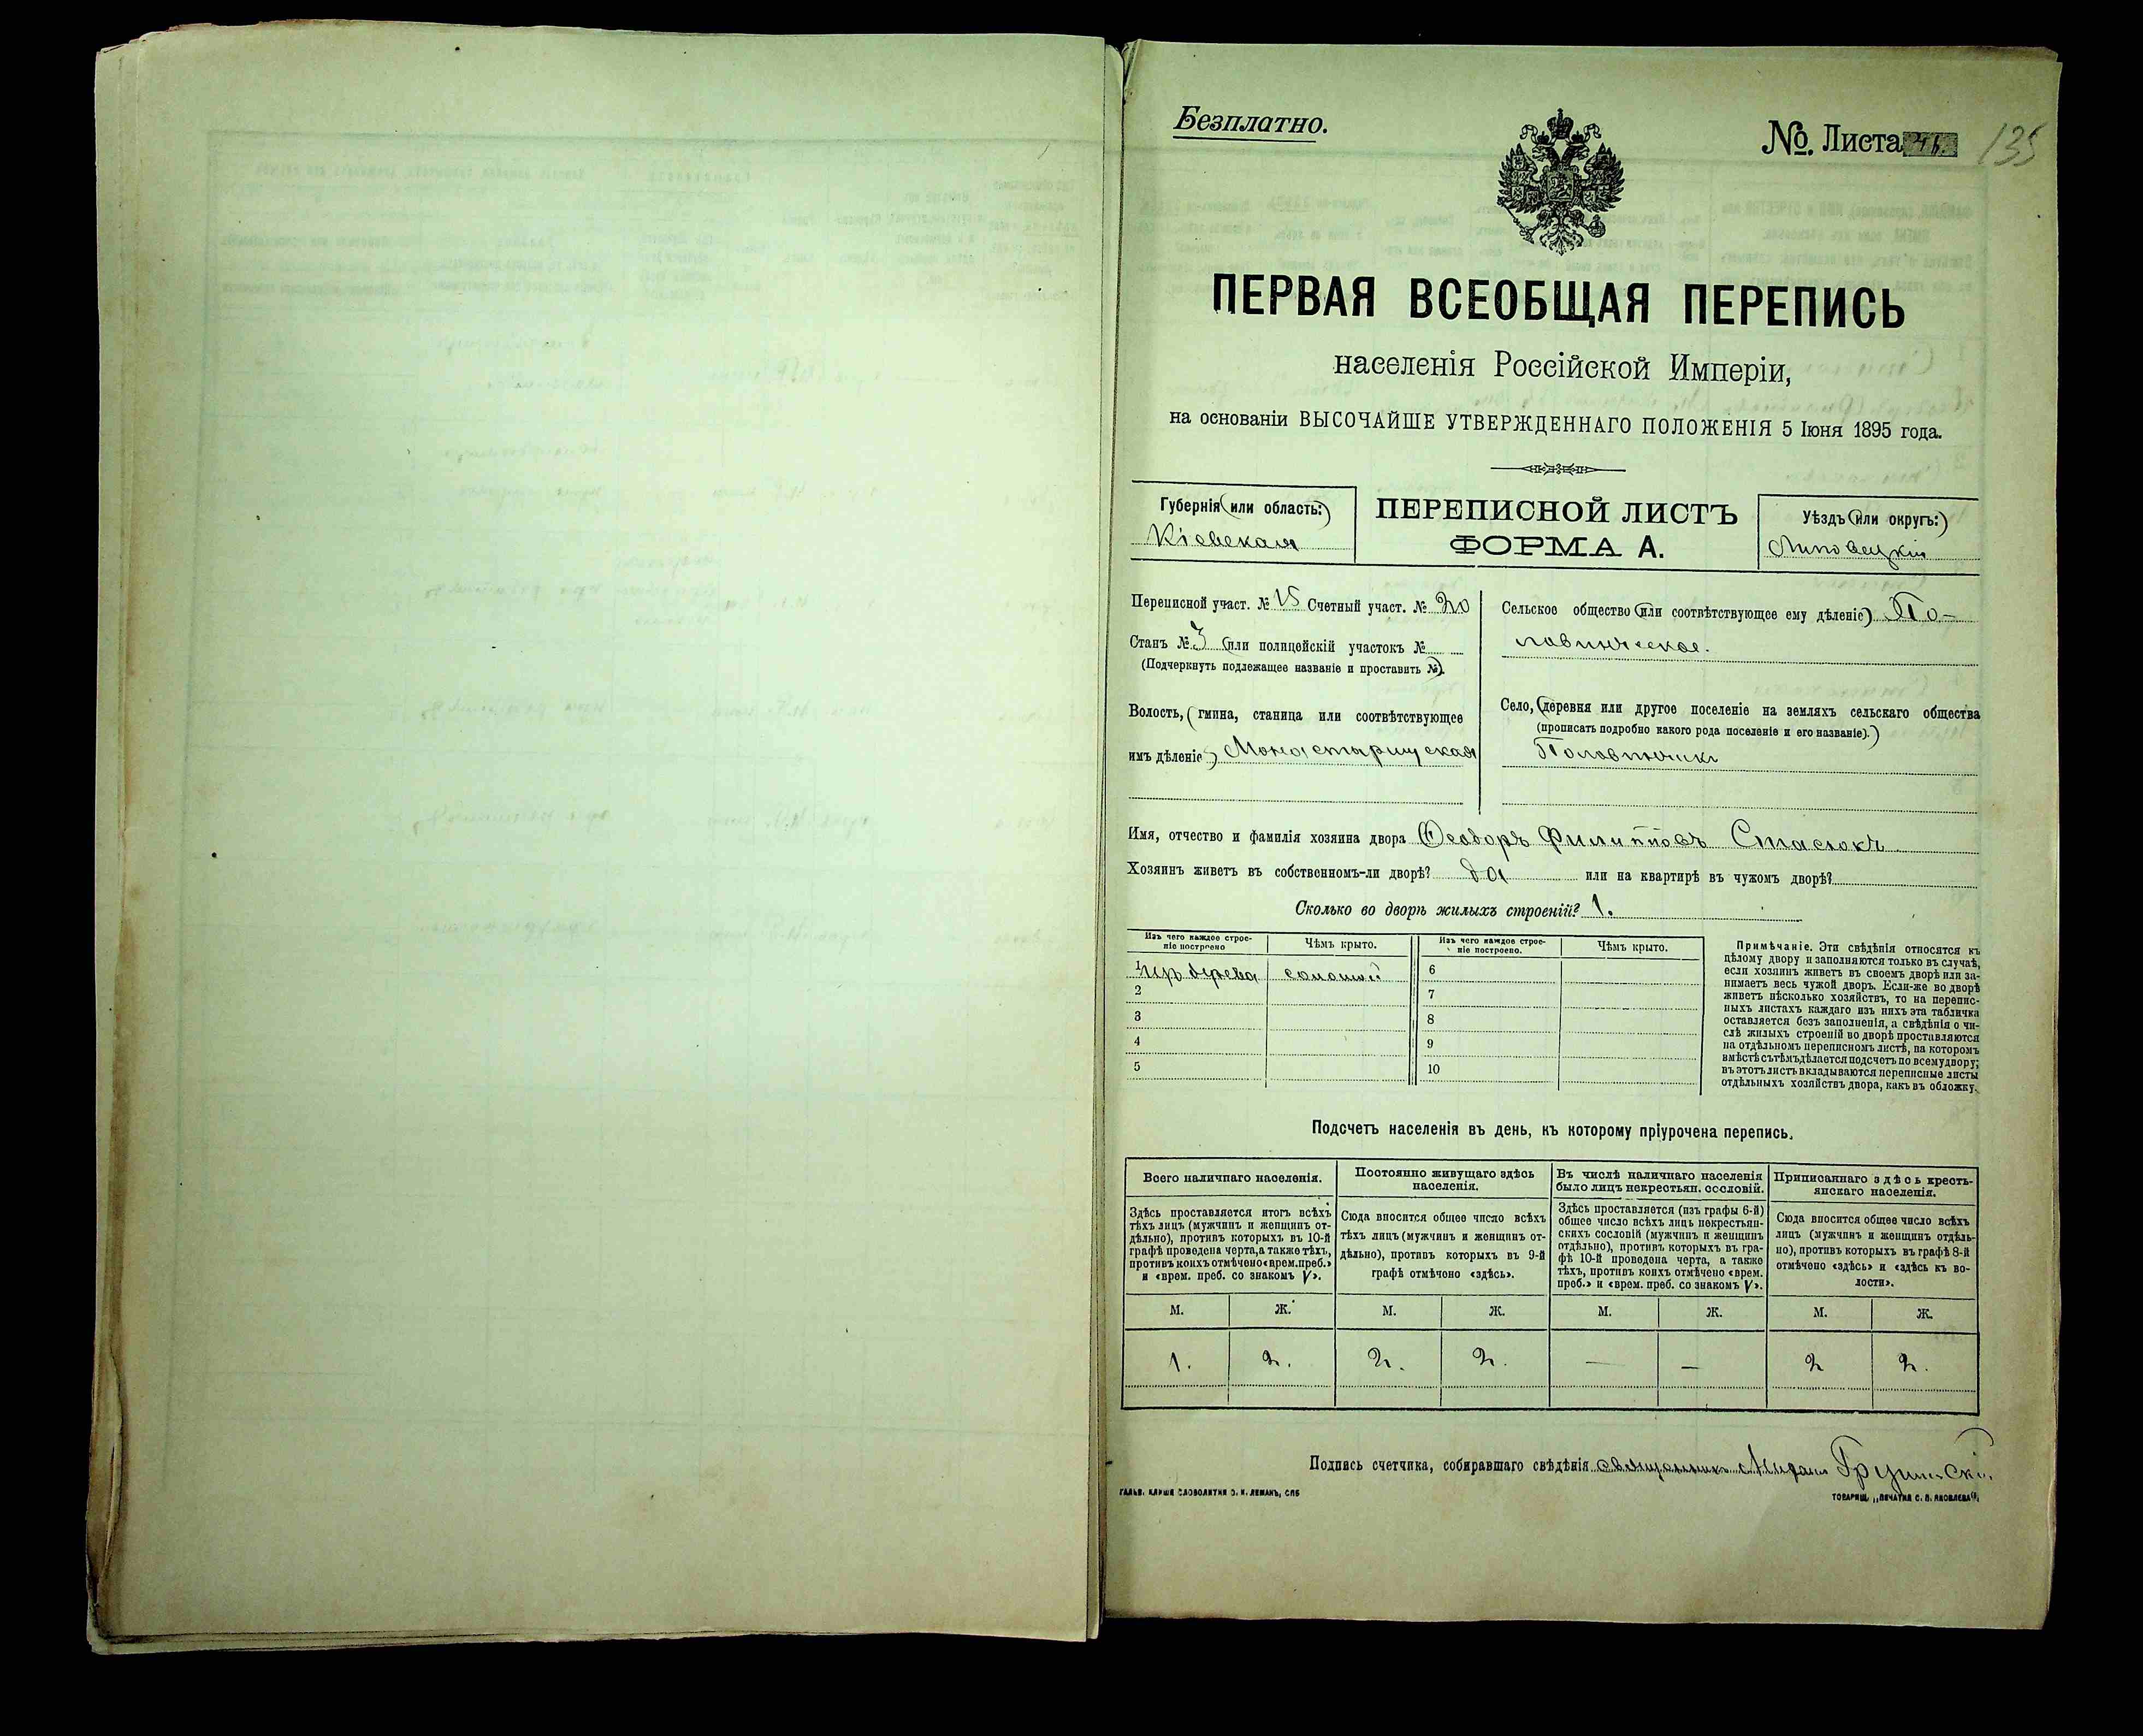 Безплатно.
№. Листа 46. 135
ПЕРВАЯ ВСЕОБЩАЯ ПЕРЕПИСЬ
населенія Россійской Имперіи,
на основаніи ВЫСОЧАЙШЕ УТВЕРЖДЕННАГО ПОЛОЖЕНІЯ 5 Іюня 1895 года.
Губернія (или область:)
Кіевская
ПЕРЕПИСНОЙ ЛИСТЪ
ФОРМА А.
Уѣздъ (или округъ:)
Липовецкій
Переписной участ. № 15 Счетный участ. № 20
Станъ № 3 (или полицейскій участокъ №
(Подчеркнуть подлежащее названіе и проставить №).
Волость, (гмина, станица или соотвѣтствующее
имъ дѣленіе) Монастырищская
Сельское общество (или соотвѣтствующее ему дѣленіе) По-
ловинчское.
Село, (деревня или другое поселеніе на земляхъ сельскаго общества
(прописать подробно какого рода поселеніе и его названіе).)
Половинчикъ
Имя, отчество и фамилія хозяина двора Ѳеодоръ Филипповъ Стасюкъ
Хозяинъ живетъ въ собственномъ-ли дворѣ? да или на квартирѣ въ чужомъ дворѣ?
Сколько во дворѣ жилыхъ строеній? 1.
Изъ чего каждое строе-
ніе построено
Чѣмъ крыто.
Изъ чего каждое строе-
ніе построено.
Чѣмъ крыто.
1 изъ дерева соломой 6
2 7
3 8
4 9
5 10
Примѣчаніе. Эти свѣдѣнія относятся къ
цѣлому двору и заполняются только въ случаѣ,
если хозяинъ живетъ въ своемъ дворѣ или за-
нимаетъ весь чужой дворъ. Если-же во дворѣ
живетъ нѣсколько хозяйствъ, то на перепис-
ныхъ листахъ каждаго изъ нихъ эта табличка
оставляется безъ заполненія, а свѣдѣнія о чи-
слѣ жилыхъ строеній во дворѣ проставляются
на отдѣльномъ переписномъ листѣ, на которомъ
вмѣстѣ съ тѣмъ дѣлается подсчетъ по всему двору;
въ этотъ листъ вкладываются переписные листы
отдѣльныхъ хозяйствъ двора, какъ въ обложку.
Подсчетъ населенія въ день, къ которому пріурочена перепись.
Всего наличнаго населенія.
Здѣсь проставляется итогъ всѣхъ
тѣхъ лицъ (мужчинъ и женщинъ от-
дѣльно), противъ которыхъ въ 10-й
графѣ проведена черта, а также тѣхъ,
противъ коихъ отмѣчено «врем. преб.»
и «врем. преб. со знакомъ V».
Постоянно живущаго здѣсь
населенія.
Сюда вносится общее число всѣхъ
тѣхъ лицъ (мужчинъ и женщинъ от-
дѣльно), противъ которыхъ въ 9-й
графѣ отмѣчено «здѣсь».
Въ числѣ наличнаго населенія
было лицъ некрестьян. сословій.
Здѣсь проставляется (изъ графы 6-й)
общее число всѣхъ лицъ некрестьян-
скихъ сословій (мужчинъ и женщинъ
отдѣльно), противъ которыхъ въ гра-
фѣ 10-й проведена черта, а также
тѣхъ, противъ коихъ отмѣчено «врем.
преб.» и «врем. преб. со знакомъ V».
Приписаннаго здѣсь кресть-
янскаго населенія.
Сюда вносится общее число всѣхъ
лицъ (мужчинъ и женщинъ отдѣль-
но), противъ которыхъ въ графѣ 8-й
отмѣчено «здѣсь» и «здѣсь къ во-
лости».
М. Ж. М. Ж. М. Ж. М. Ж.
1. 2. 2. 2. — — 2 2.
Подпись счетчика, собиравшаго свѣдѣнія священникъ
ГАЛЬВ. КЛИШЕ СЛОВОЛИТНИ О. И. ЛЕМАНЪ, СПБ
ТОВАРИЩ. „ПЕЧАТНЯ С. П. ЯКОВЛЕВА".